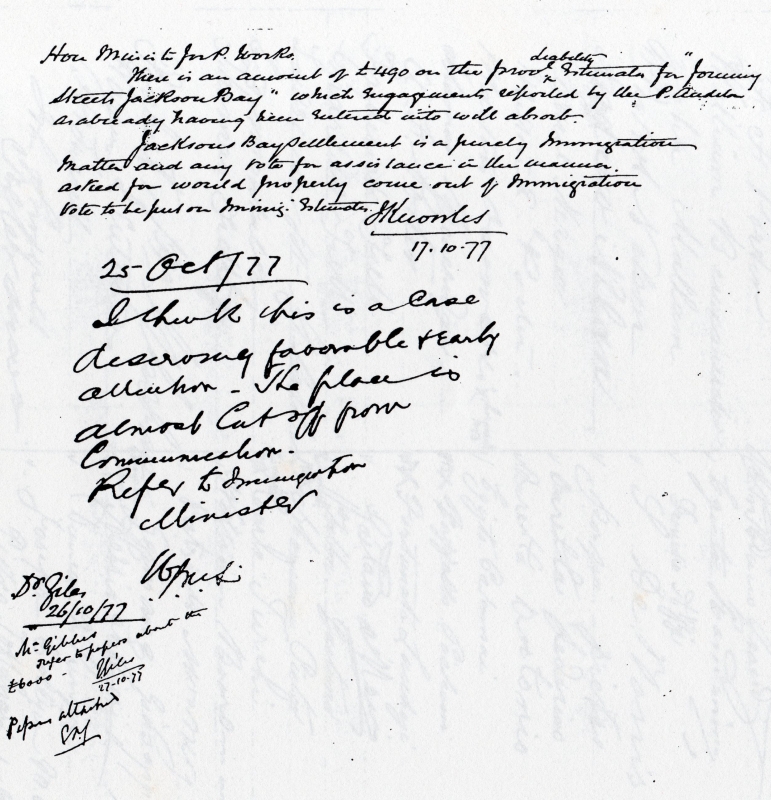 Hon Minister for P. Works.
There is an amount of £490 on the prov.l liability Estimates for "forming
Streets Jackson Bay" which engagements reported by the P. Auditor
as already having been entered into will absorb.
Jacksons Bay Settlement is a purely Immigration
Matter and any vote for assistance in the manner
asked for would properly come out of Immigration
Vote to be put on Immig. Estimates. J Knowles
17.10.77
25 Oct/77
I think this is a Case
deserving favorable & early
attention - The place is
almost Cut off from
Communication.
Refer to Immigration
Minister
Dr. Giles
26/10/77
Mr. Gibbes
refer to papers about the
£6000 -
Giles
27-10-77
Papers attached